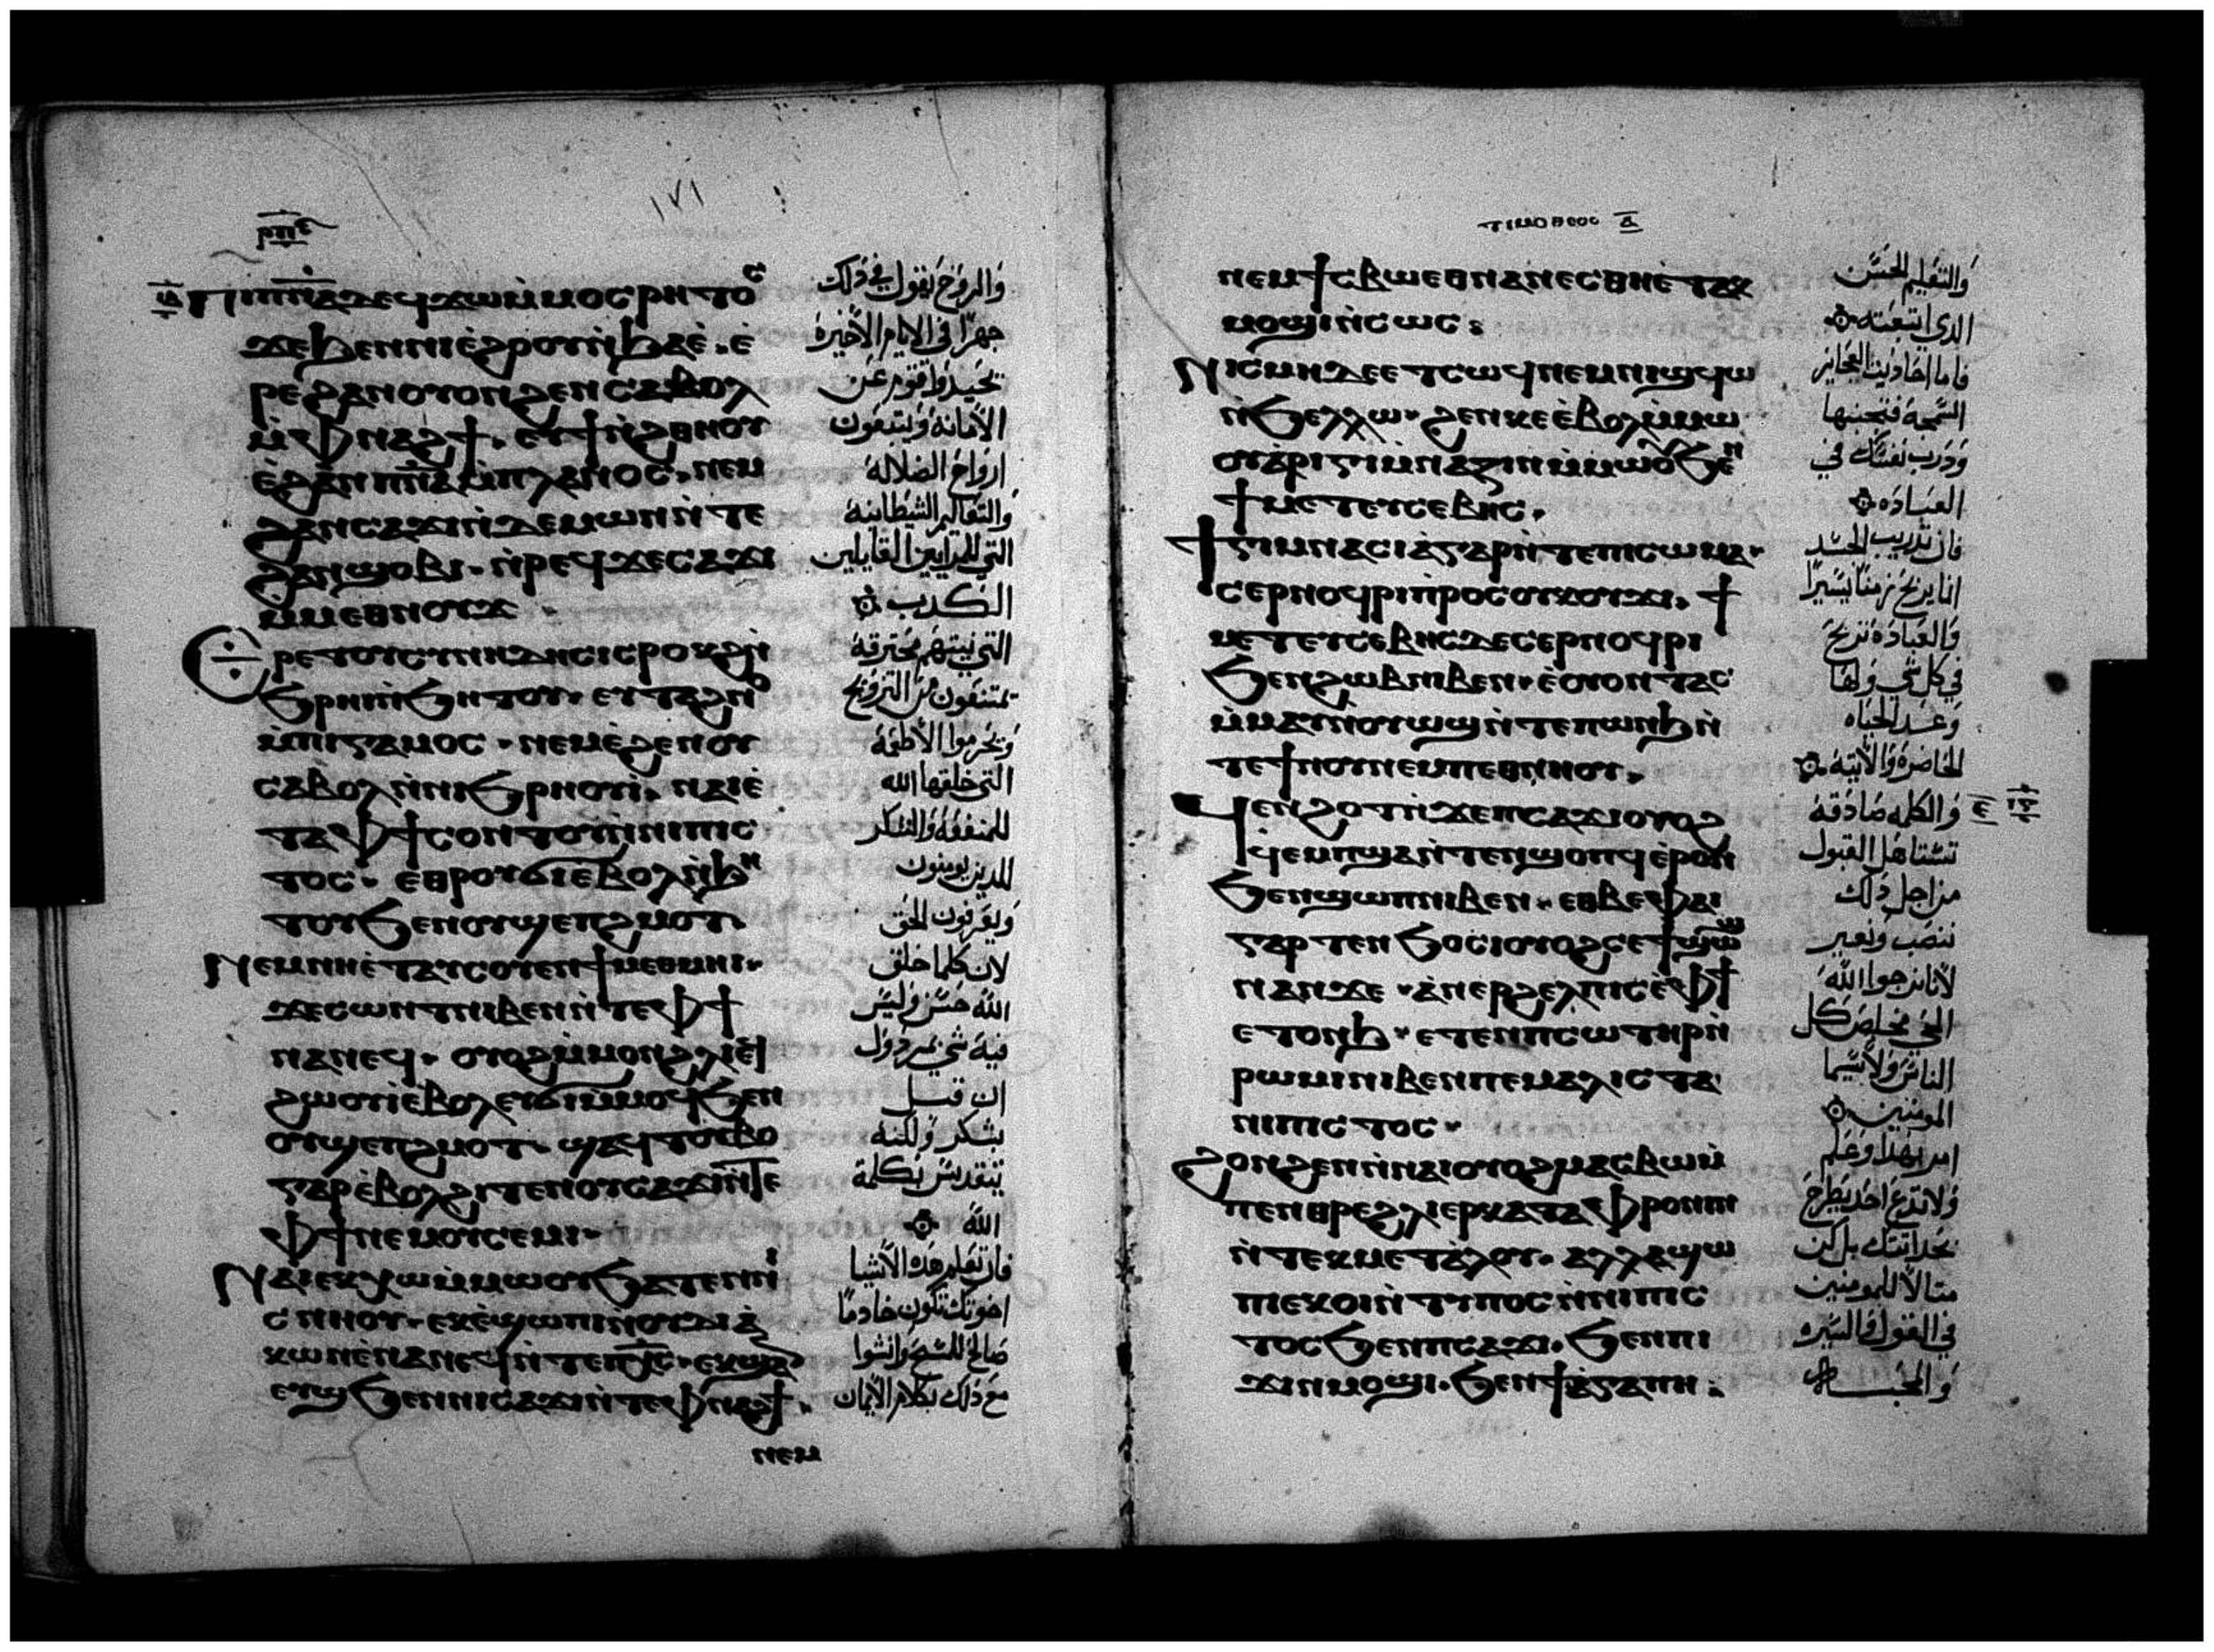 ⲣⲡⲉ
١٧١
ⲓⲇ ⲡⲓⲡⲛⲁ ⲇⲉ ϥϫⲱ ⲙ̀ⲙⲟⲥ ⲣⲏⲧⲟⲥ
ϫⲉ ϧⲉⲛ ⲛⲓⲉ̀ϩⲟⲟⲩ ⲛ̀ϧⲁⲉ̀. ⲉ̀
ⲣⲉ ϩⲁⲛⲟⲩⲟⲛ ϩⲉⲛ ⲥⲁⲃⲟⲗ
ⲙ̀ⲫⲛⲁϩϯ. ⲉⲩϯⲛ̀ϩⲑⲏⲟⲩ
ⲉ̀ϩⲁⲛⲡⲛⲁ ⲙ̀ⲡⲗⲁⲛⲟⲥ. ⲛⲉⲙ
ϩⲁⲛⲥⲁϫⲓ ⲛ̀ⲇⲉⲙⲱⲛ ⲛ̀ⲧⲉ
ϩⲁⲛϣⲟⲃⲓ. ⲛ̀ⲣⲉϥϫⲉⲥⲁϫⲓ
ⲙ̀ⲙⲉⲑⲛⲟⲩϫ
ⲉⲣⲉ ⲧⲟⲩⲥⲩⲛⲏⲇⲏⲥⲓⲥ ⲣⲟⲕϩ ⲛ̀
ϧⲣⲏⲓ ⲛ̀ϧⲏⲧⲟⲩ. ⲉⲩⲧⲁϩⲛⲟ
ⲙ̀ⲡⲓⲅⲁⲙⲟⲥ. ⲛⲉⲙ ⲉ̀ϩⲉⲛⲟⲩ
ⲥⲁⲃⲟⲗ ⲛ̀ⲛⲓϧⲣⲏⲟⲩⲓ̀. ⲛⲁⲓ ⲉ̀
ⲧⲁ ⲫϯ ⲥⲟⲛⲧⲟⲩ ⲛ̀ⲛⲓⲡⲓⲥ
ⲧⲟⲥ. ⲉⲑⲣⲟⲩϭⲓ ⲉⲃⲟⲗ ⲛ̀ϧⲏ
ⲧⲟⲩ ϧⲉⲛ ⲟⲩϣⲉⲡϩⲙⲟⲧ.
ⲛⲉⲙ ⲛⲏ ⲉ̀ⲧⲁⲩⲥⲟⲩⲉⲛ ϯⲙⲉⲑⲙⲏⲓ.
ϫⲉ ⲥⲱⲛⲧ ⲛⲓⲃⲉⲛ ⲛ̀ⲧⲉ ⲫϯ
ⲛⲁⲛⲉϥ. ⲟⲩⲟϩ ⲙ̀ⲙⲟⲛ ϩⲗⲓ ⲉϥ
ϩⲱⲟⲩⲓ ⲉ̀ⲃⲟⲗ ⲉⲩϭⲓ ⲙ̀ⲙⲟϥ ϧⲉⲛ
ⲟⲩϣⲉⲡϩⲙⲟⲧ. ϣⲁϥⲧⲟⲩⲃⲟ
ⲅⲁⲣ ⲉ̀ⲃⲟⲗ ϩⲓⲧⲉⲛ ⲟⲩⲥⲁϫⲓ ⲛ̀ⲧⲉ
ⲫϯ ⲛⲉⲙ ⲟⲩⲥⲉⲙⲓ.
ⲛⲁⲓ ⲉⲕⲭⲱ ⲙ̀ⲙⲱⲟⲩ ϧⲁⲧⲉⲛ ⲛⲓ
ⲥⲛⲏⲟⲩ. ⲉⲕⲉ̀ϣⲱⲡⲓ ⲛ̀ⲟⲩⲇⲓⲁ̀
ⲕⲱⲛ ⲉ̀ⲛⲁⲛⲉϥ ⲛ̀ⲧⲉ ⲡⲭⲥ. ⲉⲕϣⲁ
ⲉⲩϣ ϧⲉⲛ ⲛⲓⲥⲁϫⲓ ⲛ̀ⲧⲉ ⲫⲛⲁϩϯ.
ⲛⲉⲙ
والروح يقول في ذلك
جهرًا في الايام الاخيرة
تحيد اقوم عن
الامانة ويتبعون
ارواح الضلالة
والتعاليم الشيطانية
التي للمرايين القايلين
الكدب
التي نيتهم محترقة
يمتنعون من التزويج
ويحرموا الاطعمة
التي خلقها الله
للمنفعة والشكر
للدين يومنون
ويعرفون الحق
لان كلما خلق
الله حسن وليس
فيه شي مردول
ان قبل
بشكر ولكنه
يتقدس بكلمة
الله
فان تعلم هده الاشيا
اخوتك تكون خادمًا
صالحًا للمسيح وانشوا
مع ذلك بكلام الايمان
ⲧⲓⲙⲟⲑⲉⲟⲥ ⲁ
ⲛⲉⲙ ϯⲥⲃⲱ ⲉⲑⲛⲁⲛⲉⲥ ⲑⲏ ⲉ̀ⲧⲁⲕ
ⲙⲟϣⲓ ⲛ̀ⲥⲱⲥ:
ⲛⲓⲥⲙⲏ ⲇⲉ ⲉⲧⲥⲱϥ ⲛⲉⲙ ⲛⲓϣϥⲱ
ⲛ̀ϧⲉⲗⲗⲱ. ϩⲉⲛⲕ ⲉ̀ⲃⲟⲗ ⲙ̀ⲙⲱ
ⲟⲩ ⲁⲣⲓⲅⲩⲙⲛⲁⲍⲓⲛ ⲙ̀ⲙⲱⲟⲩ ϧⲉⲛ
ϯⲙⲉⲧⲉⲩⲥⲉⲃⲏⲥ.
ϯⲅⲩⲙⲛⲁⲥⲓⲁ̀ ⲅⲁⲣ ⲛ̀ⲧⲉ ⲡⲓⲥⲱⲙⲁ.
ⲥⲉⲣⲛⲟϥⲣⲓ ⲡ̀ⲣⲟⲥ ⲟⲩⲕⲟⲩϫⲓ. ϯ
ⲙⲉⲧⲉⲩⲥⲉⲃⲏⲥ ⲇⲉ ⲥⲉⲣⲛⲟϥⲣⲓ
ϧⲉⲛ ϩⲱⲃ ⲛⲓⲃⲉⲛ. ⲉ̀ⲟⲩⲟⲛⲧⲁⲥ
ⲙ̀ⲙⲁⲩ ⲛ̀ⲟⲩⲱϣ ⲛ̀ⲧⲉ ⲡⲱⲛϧ ⲛ̀
ⲧⲉ ϯⲛⲟⲩ ⲛⲉⲙ ⲡⲉⲑⲛⲏⲟⲩ.
ϥⲉⲛϩⲟⲧ ⲛ̀ϫⲉ ⲡⲥⲁϫⲓ ⲟⲩⲟϩ
ϥⲉⲙⲡϣⲁ ⲛ̀ⲧⲉⲛϣⲟⲡϥ ⲉ̀ⲣⲟⲛ
ϧⲉⲛ ϣⲱⲡ ⲛⲓⲃⲉⲛ. ⲉⲑⲃⲉ ⲫⲁⲓ
ⲅⲁⲣ ⲧⲉⲛϧⲟⲥⲓ ⲟⲩⲟϩ ⲥⲉϯϣⲱϣ
ⲛⲁⲛ ϫⲉ. ⲁⲛⲉⲣϩⲉⲗⲡⲓⲥ ⲉ̀ⲫϯ
ⲉⲧⲟⲛϧ. ⲉⲧⲉ ⲛⲡⲥⲱⲧⲏⲣ ⲛ̀
ⲣⲱⲙⲓ ⲛⲓⲃⲉⲛ ⲡⲉ ⲙⲁⲗⲓⲥⲧⲁ
ⲛⲓⲡⲓⲥⲧⲟⲥ.
ϩⲟⲛϩⲉⲛ ⲛ̀ⲛⲁⲓ ⲟⲩⲟϩ ⲙⲁⲥⲃⲱ ⲙ̀
ⲡⲉⲛⲑⲣⲉ ϩⲗⲓ ⲉⲣⲕⲁⲧⲁⲫⲣⲟⲛⲓⲛ
ⲛ̀ⲧⲉⲕⲙⲉⲧⲁ̀ⲗⲟⲩ. ⲁⲗⲗⲁ ϣⲱ
ⲡⲓ ⲉⲕⲟⲓ ⲛ̀ⲧⲩⲡⲟⲥ ⲛ̀ⲛⲓⲡⲓⲥ
ⲧⲟⲥ ϧⲉⲛ ⲡⲥⲁϫⲓ. ϧⲉⲛ ⲡⲓ
ϫⲓⲛⲙⲟϣⲓ. ϧⲉⲛ ϯⲁ̀ⲅⲁⲡⲏ.
والتعليم الحسن
الدي اتبعته
فاما احاديث العجايز
السمجة فتجنبها
ودرب نفسك في
العبادة
فان تدريب الجسد
انما يربح زمنًا يسيرًا
والعبادة تربح
في كل شي ولها
وعد الحياه
الحاضرة والاتية
والكلمه صادقة ⲉ
تستاهل القبول
من اجل ذلك
ننصب ونعير
لاننا نرجوا الله
الحي مخلص كل
الناس ولا سيما
المومنين
امر بهدا وعلم
ولا تدع احد يطرح
بحداثتك بل كن
مثالا للمومنين
في القول والسيره